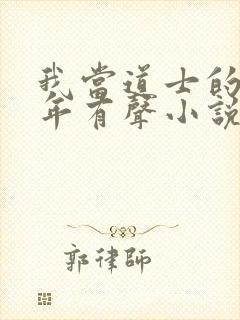 我當道士的
年有聲小說
郭律師